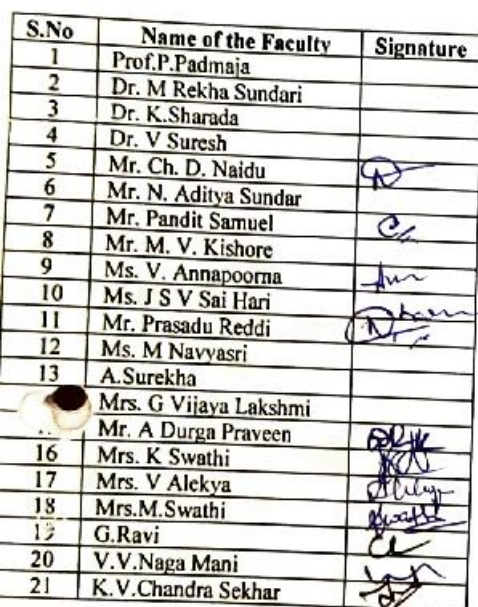 S.No Name of the Faculty Signature
1 Prof.P.Padmaja
2 Dr. M Rekha Sundari
3 Dr. K.Sharada
4 Dr. V Suresh
5 Mr. Ch. D. Naidu
6 Mr. N. Aditya Sundar
7 Mr. Pandit Samuel
8 Mr. M. V. Kishore
9 Ms. V. Annapoorna
10 Ms. J S V Sai Hari
11 Mr. Prasadu Reddi
12 Ms. M Navyasri
13 A.Surekha
Mrs. G Vijaya Lakshmi
Mr. A Durga Praveen
16 Mrs. K Swathi
17 Mrs. V Alekya
18 Mrs.M.Swathi Swathi
19 G.Ravi
20 V.V.Naga Mani
21 K.V.Chandra Sekhar